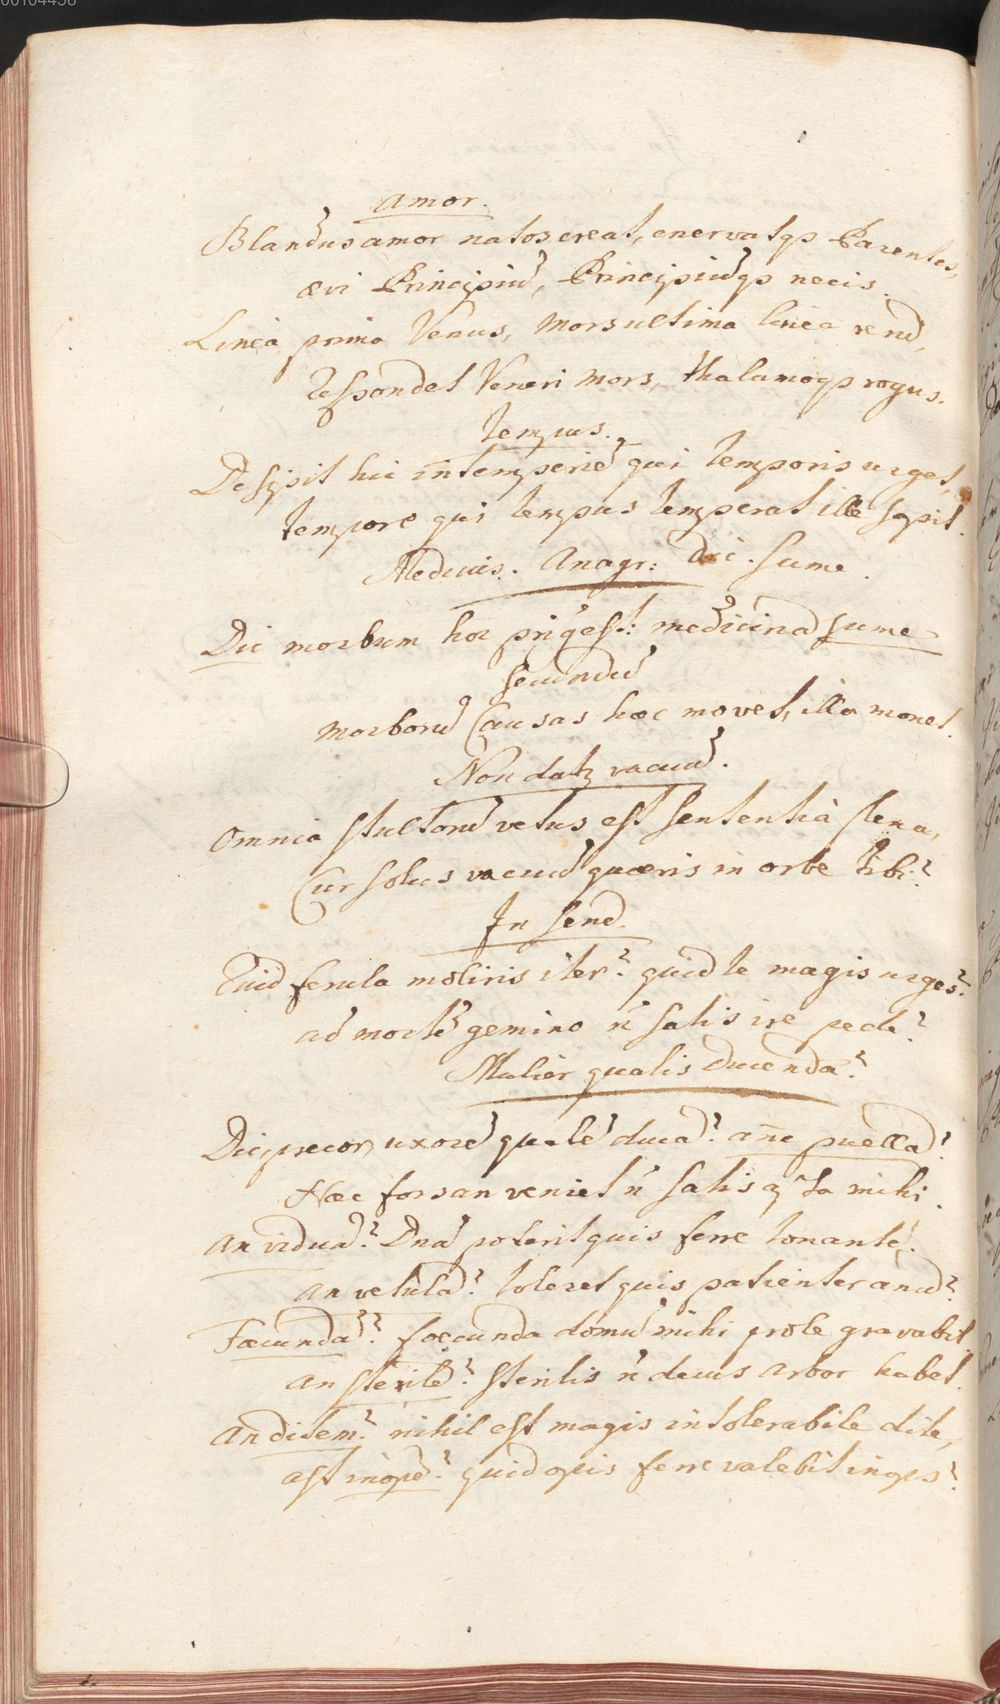 00104436
Amor.
Blandus amor natos creat, enervatqs Parentes,
ævi Principiū, Principiūqs necis.
Linea prima Venus, Mors ultima linea rerū,
Respondet Veneri Mors, thalamoqs rogus.
Tempus.
Desipit hic intemperiē qui temporis urget,
tempore qui tempus temperat ille sapit.
Medicus. Anagr: Dic. Sume.
Dic morbum hoc est: medicinā sume
Secundū
Morborū Causas hæc movet, illa monet.
Non datz vacuū.
Omnia stultorū vetus est sententia plena,
Cur solus vacuū quæris in orbe tibi?
In Senē.
Quid ferula moliris iter? quid te magis urges?
ad mortē gemino ñ satis ire pede?
Mulier qualis Ducenda?
Dic, precor, uxorē qualē ducā? añe puellā?
Hæc forsan veniet ñ satis mihi.
An viduā? Dnā poterit quis ferre tonantē.
An vetulā? toleret quis patienter anū?
Fæcundā? fœcunda domū mihi prole gravabit
an sterilē? sterilis ñ decus arbor habet.
An ditem? nihil est magis intolerabile dite,
ast inopē? quid opis ferre valebit inops?